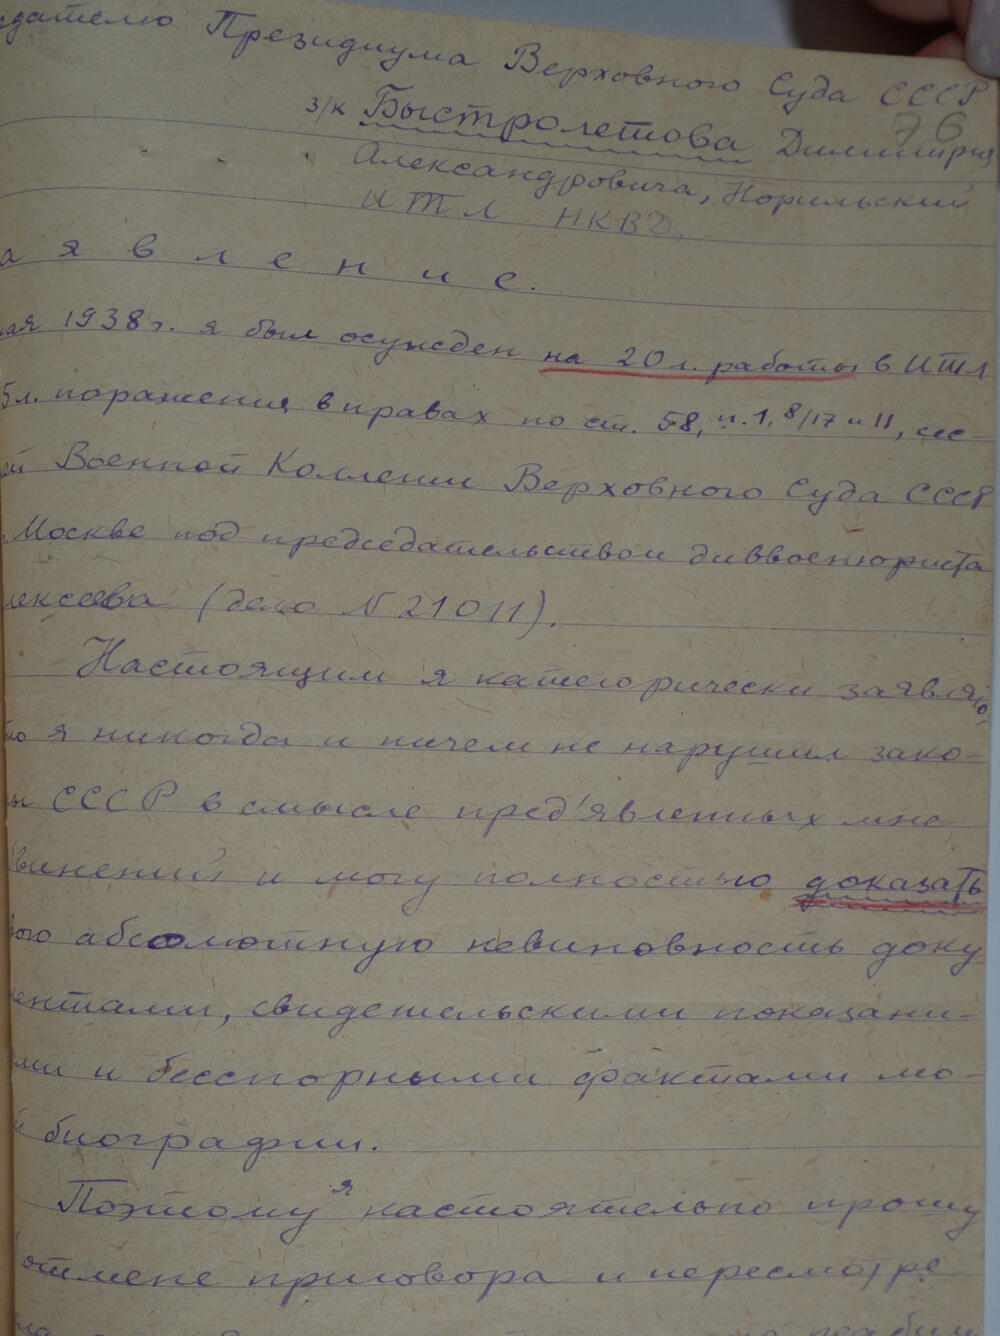 дателю Президиума Верховного Суда СССР
76
з/к Быстролетова Димитрия
Александровича, Норильский
ИТЛ НКВД,
а я в л е н и е.
ая 1938 г. я был осужден на 20 л. работы в ИТЛ
5 л. поражения в правах по ст. 58, п. 1, 8/17 и 11, сес-
ей Военной Коллегии Верховного Суда СССР
Москве под председательством диввоенюриста
лексеева (дело N 21011).
Настоящим я категорически заявляю
то я никогда и ничем не нарушил зако-
ны СССР в смысле пред'явленных мне
бвинений и могу полностью доказать
вою абсолютную невиновность доку
ентами, свидетельскими показани-
ями и бесспорными фактами мо-
й биографии.
Поэтому я настоятельно прошу
отмене приговора и пересмотре